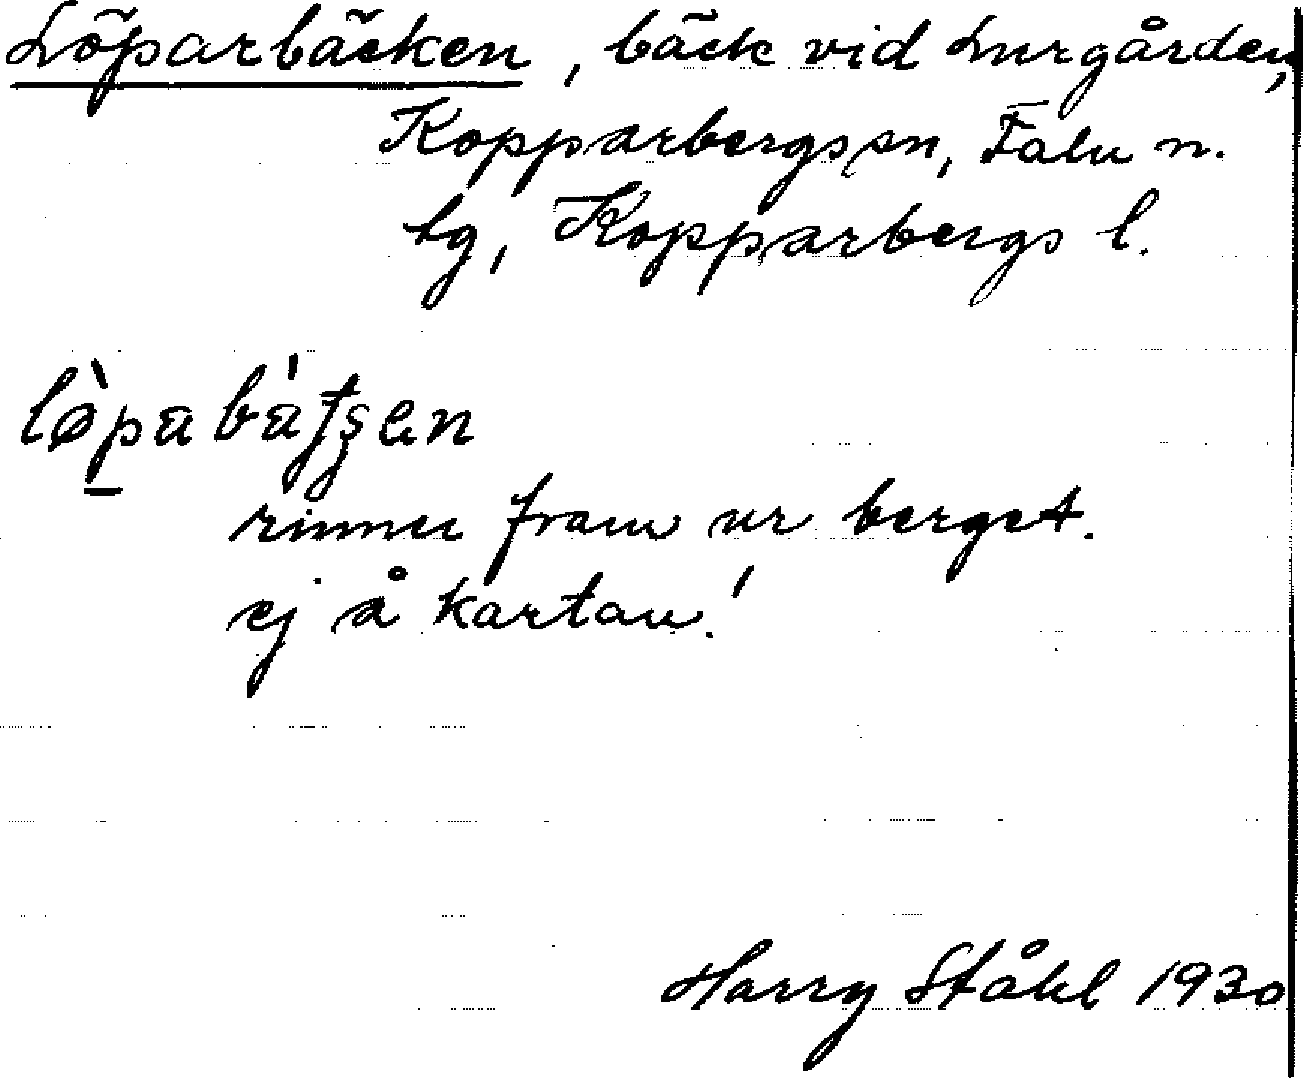 Löparbäcken, bäck vid Lurgården,
Kopparbergs sn, Falu n.
tg, Kopparbergs l.
rinner fram ur berget.
ej å kartan!
Harry Ståhl 1930